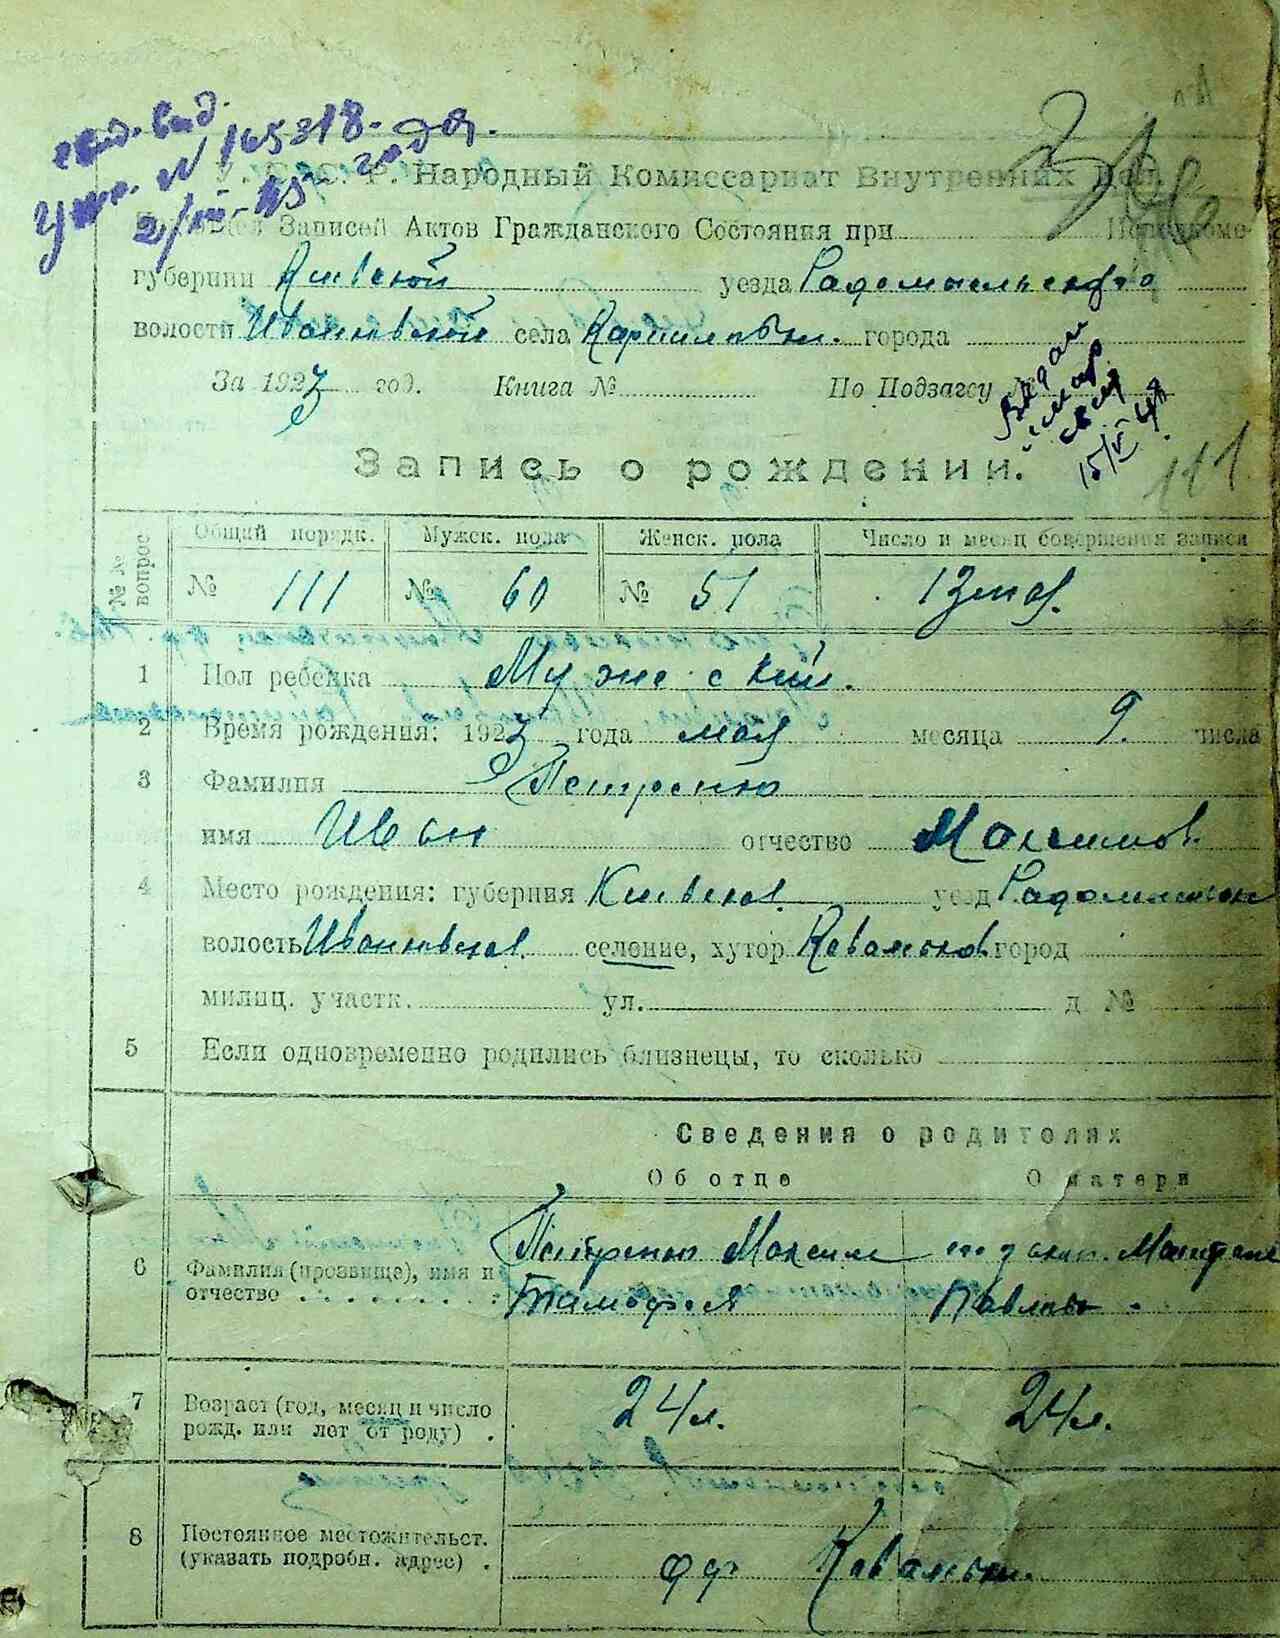 свид. выд.
№ 165318. года.
2/III-45
У. С. С. Р. Народный Комиссариат Внутренних Дел.
Записей Актов Гражданского Состояния при
губернии Киевской уезда Радомысльского
волости Иванковской села города
За 1923 год. Книга № По Подзагсу №
15/V 48
Запись о рождении.
111
№№ вопрос
Общий порядк. Мужск. пола Женск. пола Число и месяц совершения записи
№ 111 № 60 № 51 13 мая.
1 Пол ребенка Мужеский.
2 Время рождения: 1923 года мая месяца 9. числа
3 Фамилия Петренко
имя Иван отчество Максимов.
4 Место рождения: губерния Киевская. уезд Радомысльск
волость Иванковская селение, хутор город
милиц. участк. ул. д №
5 Если одновременно родились близнецы, то сколько
Сведения о родителях
Об отце О матери
6 Фамилия (прозвище), имя и отчество . . . . . . . . :
Петренко Максим
Тимофея
7 Возраст (год, месяц и число рожд. или лет от роду) .
24 л. 24 л.
8 Постоянное местожительст. (указать подробн. адрес) .